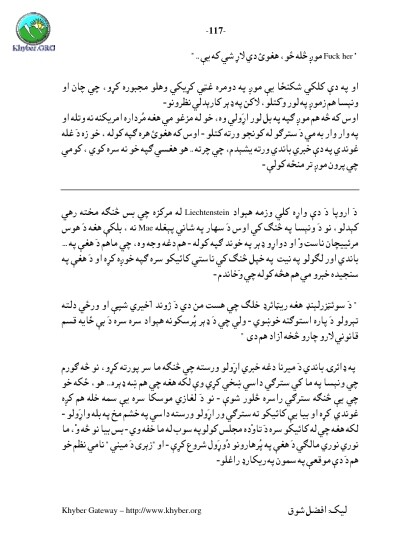 -117-
Khyber.ORG
" Fuck her موږ څله خو ، هغوئ دې لاړ شي که بې .. "
او په دې کلکې شکنځا يې موږ په دومره غټې کړيکې وهلو مجبوره کړو ، چې چان او
ونېسا هم زموږ په لور وکتلو ، لاکن په ډېر کار بدلې نظرونو -
اوس که څه هم موږ ګپه په بل لور اړولې وه ، خو له مزغو مې هغه مُرداره امريکنه نه وتله او
په وار وار به مې دَ سترګو له کونجو ورته کتلو - اوس که هغوئ هره ګپه کوله ، خو زه دَ غله
غوندې په دې خبرې باندې ورته يشېدم ، چې چرته .. هو هغسې ګپه خو نه سره کوي ، کومې
چې پرون موږ تر منځه کولې -
دَ اروپا دَ دې واړه کلي وزمه هېواد Liechtenstein له مرکزه چې بس څنګه مخته رهي
کېدلو ، نو دَ ونېسا په څنګ کې اوس دَ سهار په شانې پېغله Mae نه ، بلکې هغه دَ هوس
مرتيبچان ناست وُ او دواړو ډېر په خوند ګپه کوله - هم دغه وجه وه ، چې ما هم دَ هغې په ...
باندې اور لګولو په نيت په خپل څنګ کې ناستې کاتيکو سره ګپه خوږه کړه او دَ هغې په
سنجيده خبرو مې هم هڅه کوله چې وَخاندم -
" دَ سوئټزرلېنډ هغه ريټائرډ خلک چې هست من دي دَ ژوند آخيري شپې او ورځې دلته
تېرولو دَ پاره استوګنه خوښوي - ولې چې دَ ډېر پُرسکونه هېواد سره سره دَ بې ځايه قسم
قانوني لارو چارو څخه آزاد هم دی "
په ډائرۍ باندې دَ ميرنا دغه خبرې اړولو ورسته چې څنګه ما سر پورته کړو ، نو څه ګورم
چې ونېسا په ما کې سترګې داسې ښخې کړي وې لکه هغه چې هم ښه ډېره .. هو ، ځکه خو
چې يې څنګه سترګې راسره څلور شوې - نو دَ لغازې موسکا سره يې سمه خله هم کړه
غوندې کړه او بيا يې کاتيکو ته سترګې ور اړولو ورسته داسې په خشم مخ په بله واړولو -
لکه هغه چې له کاتيکو سره دَ تاوده مجلس کولو په سوب له ما خفه وي - بس بيا نو څه وُ ، ما
نورې نورې مالګې دَ هغې په پُرهارونو دُوړول شروع کړې - او " زېړۍ دَ مينې " نامې نظم خو
هم دَ دې موقعې په سمون په ريکارډ راغلو -
Khyber Gateway – http://www.khyber.org
ليک: افضل شوق